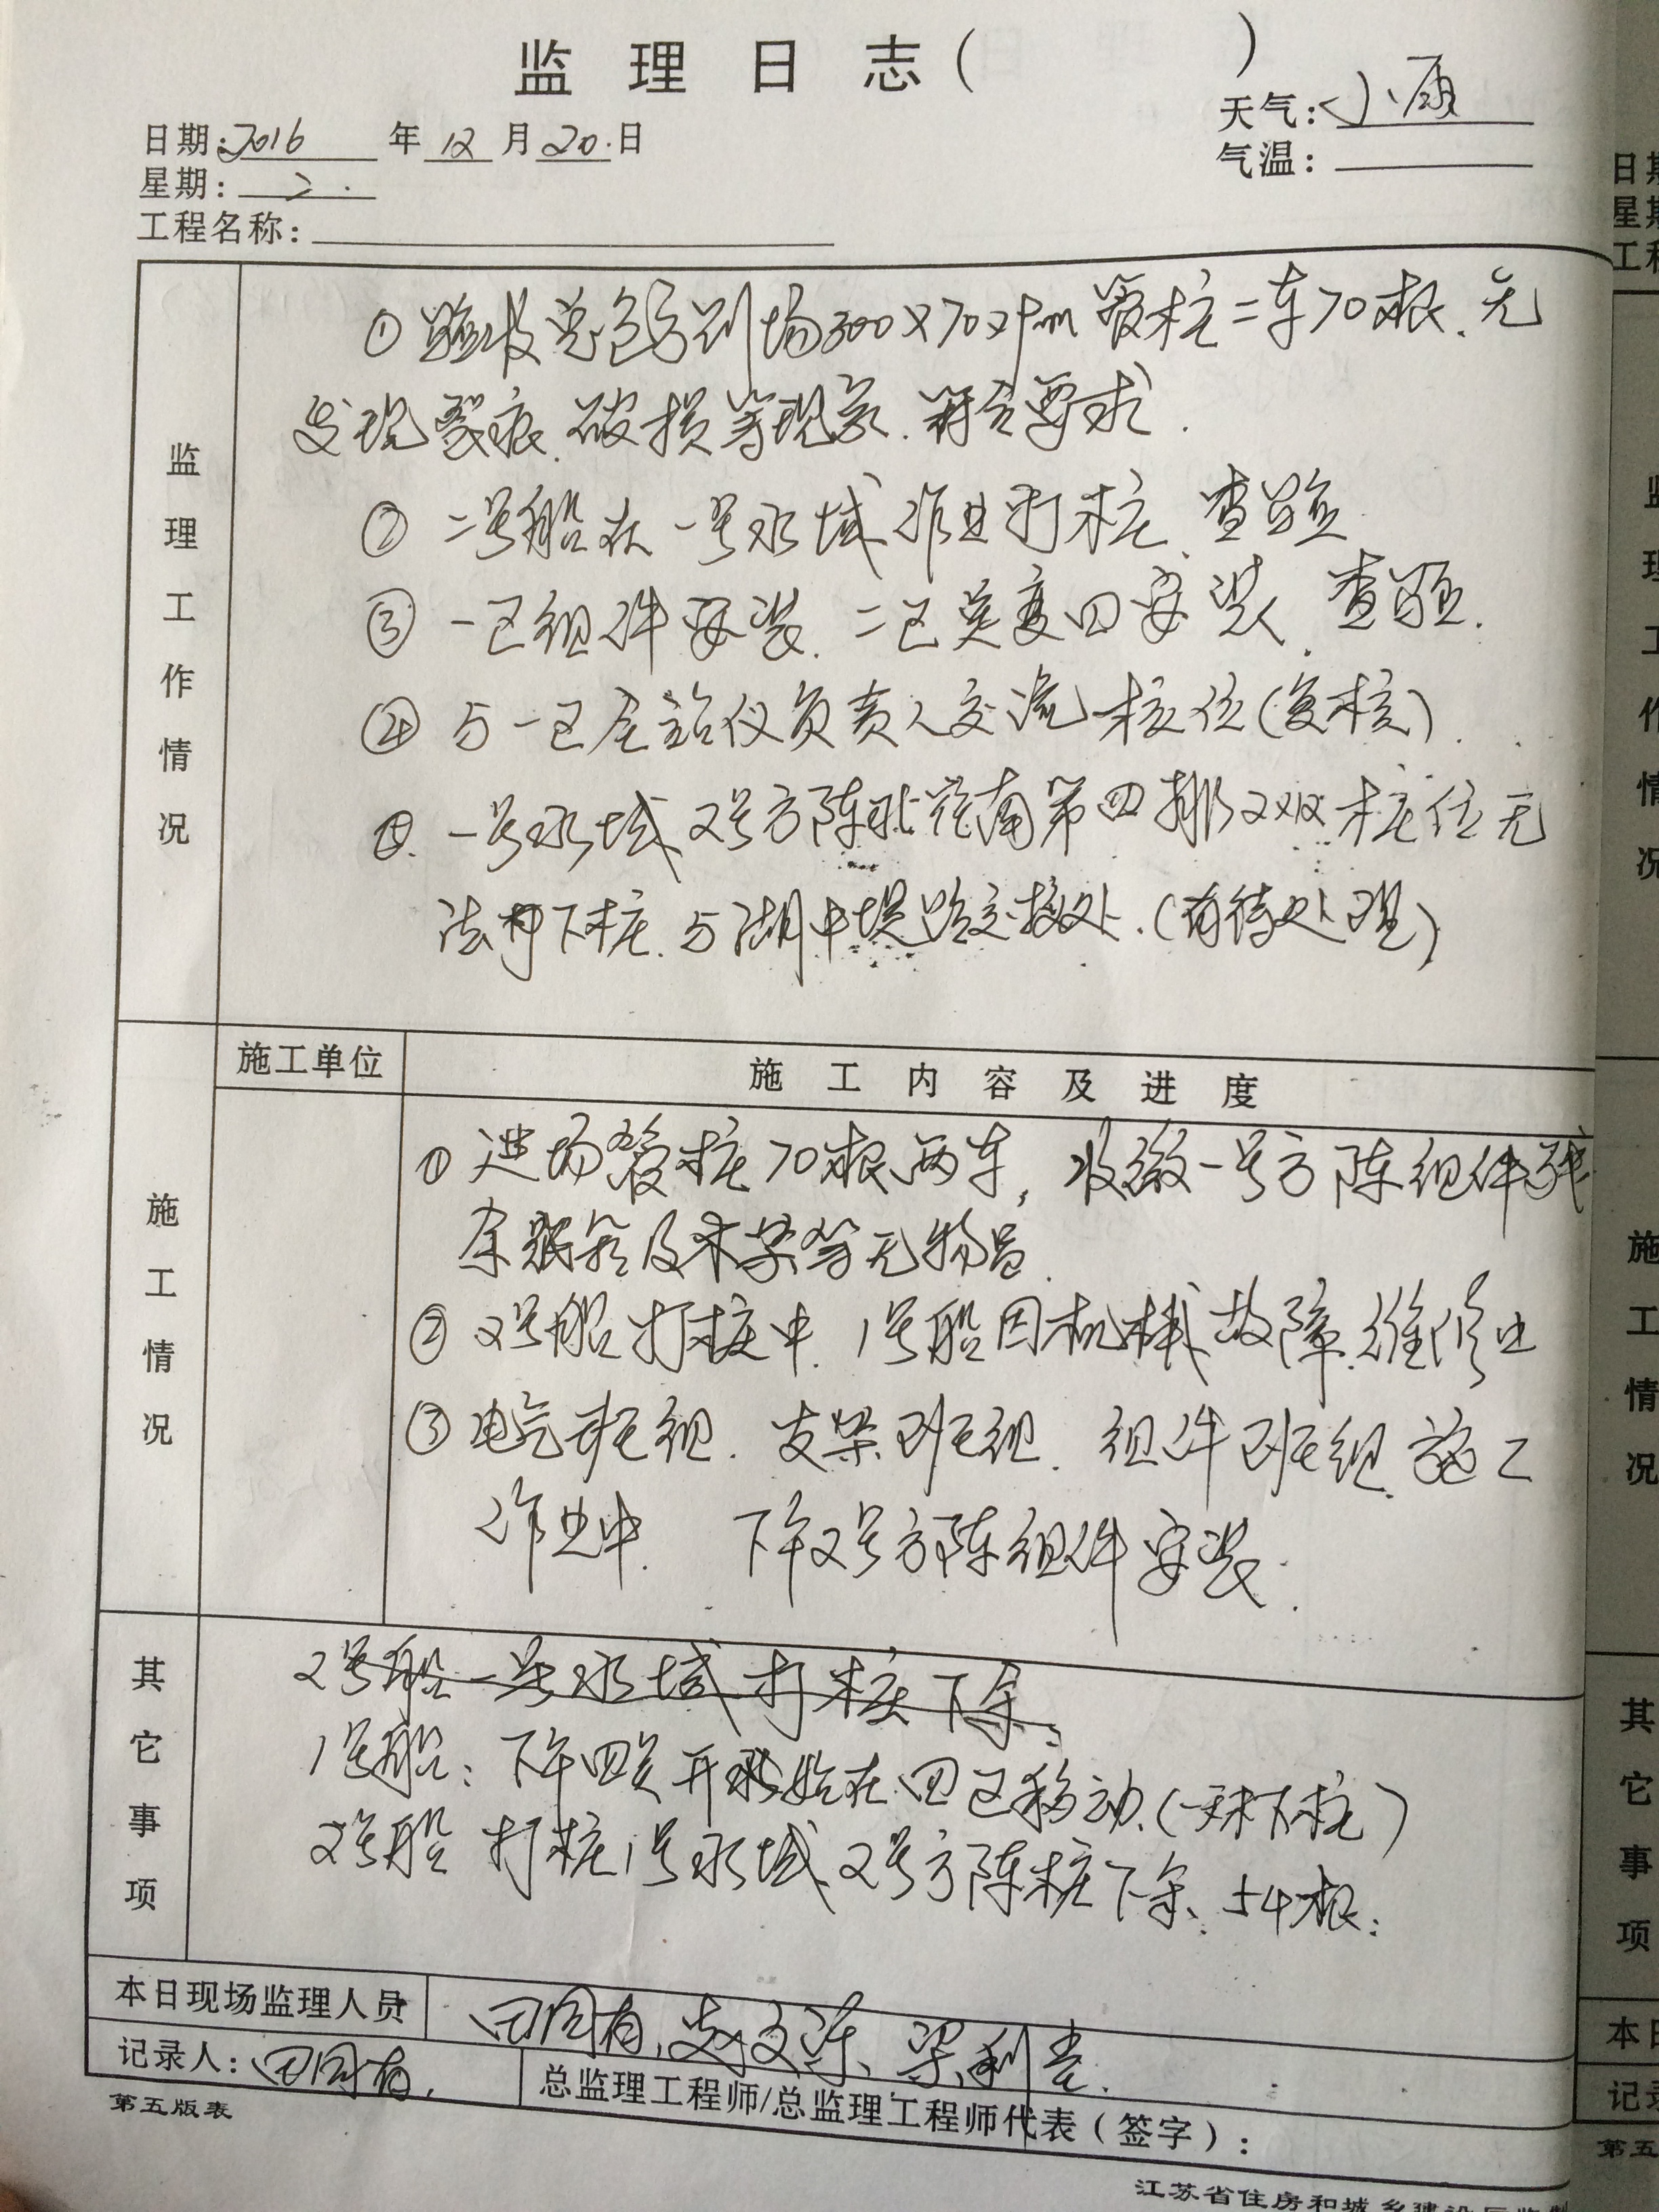 监理日志( )
日期:2016年12月20日
天气:小雨
星期:2.
气温:
工程名称:
监理工作情况
①验收总包 到场300×70 管桩二车70根.无
发现裂痕.破损等现象.符合要求.
② 二号船在一号水域作业打桩.查验
③ 一区组件安装.二区 变 安装.查验.
④ 与一区全站仪负责人交流 核位(复核).
一号水域2号方阵 南第四排2双桩位无
法打下桩.与湖中堤路交接处.(有待处理)
施工单位
施工内容及进度
施工情况
① 进场管桩70根两车, 收缴一号方阵组件残
余 及 等 物
② 2号船打桩中.1号船因机械故障.维修中
③ 电气班组.支架班组.组件班组.施工
作业中. 下午2号方阵组件安装.
其它事项
2号船一号水域打桩下余.
1号船:下午四 开始在四区移动.( 下桩)
2号船 打桩1号水域2号方阵桩下余.54根.
本日现场监理人员
田同有、 、梁利
记录人:田同有.
总监理工程师/总监理工程师代表(签字):
第五版表
江苏省住房和城乡建设厅监制
日期
星期
工程
监理工作情况
施工情况
其它事项
本日
记录
第五